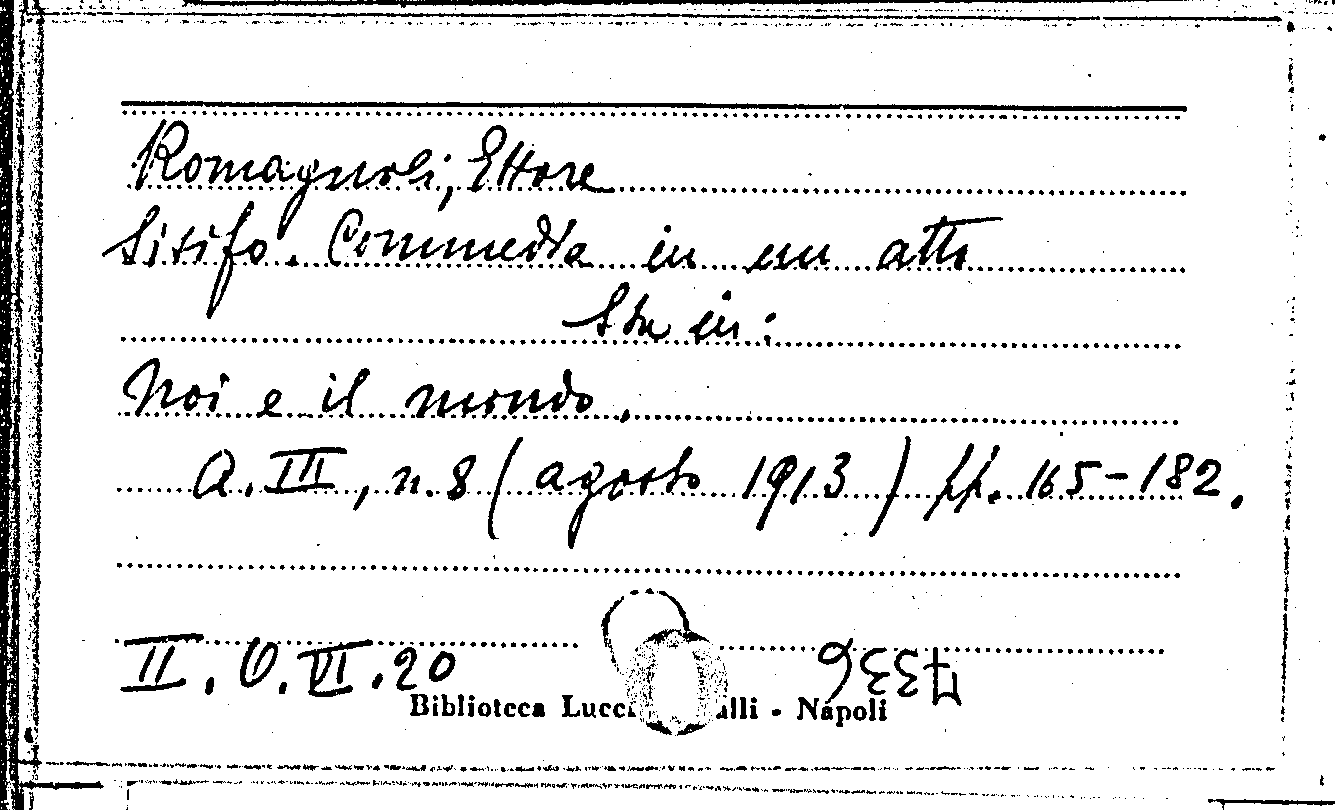 Romagnoli, Ettore
Sisifo. Commedia in un atto
Sta in:
Noi e il mondo.
A. III, n. 8 (agosto 1913) pp. 165-182.
II. O. VI. 20
7336
Biblioteca - Napoli